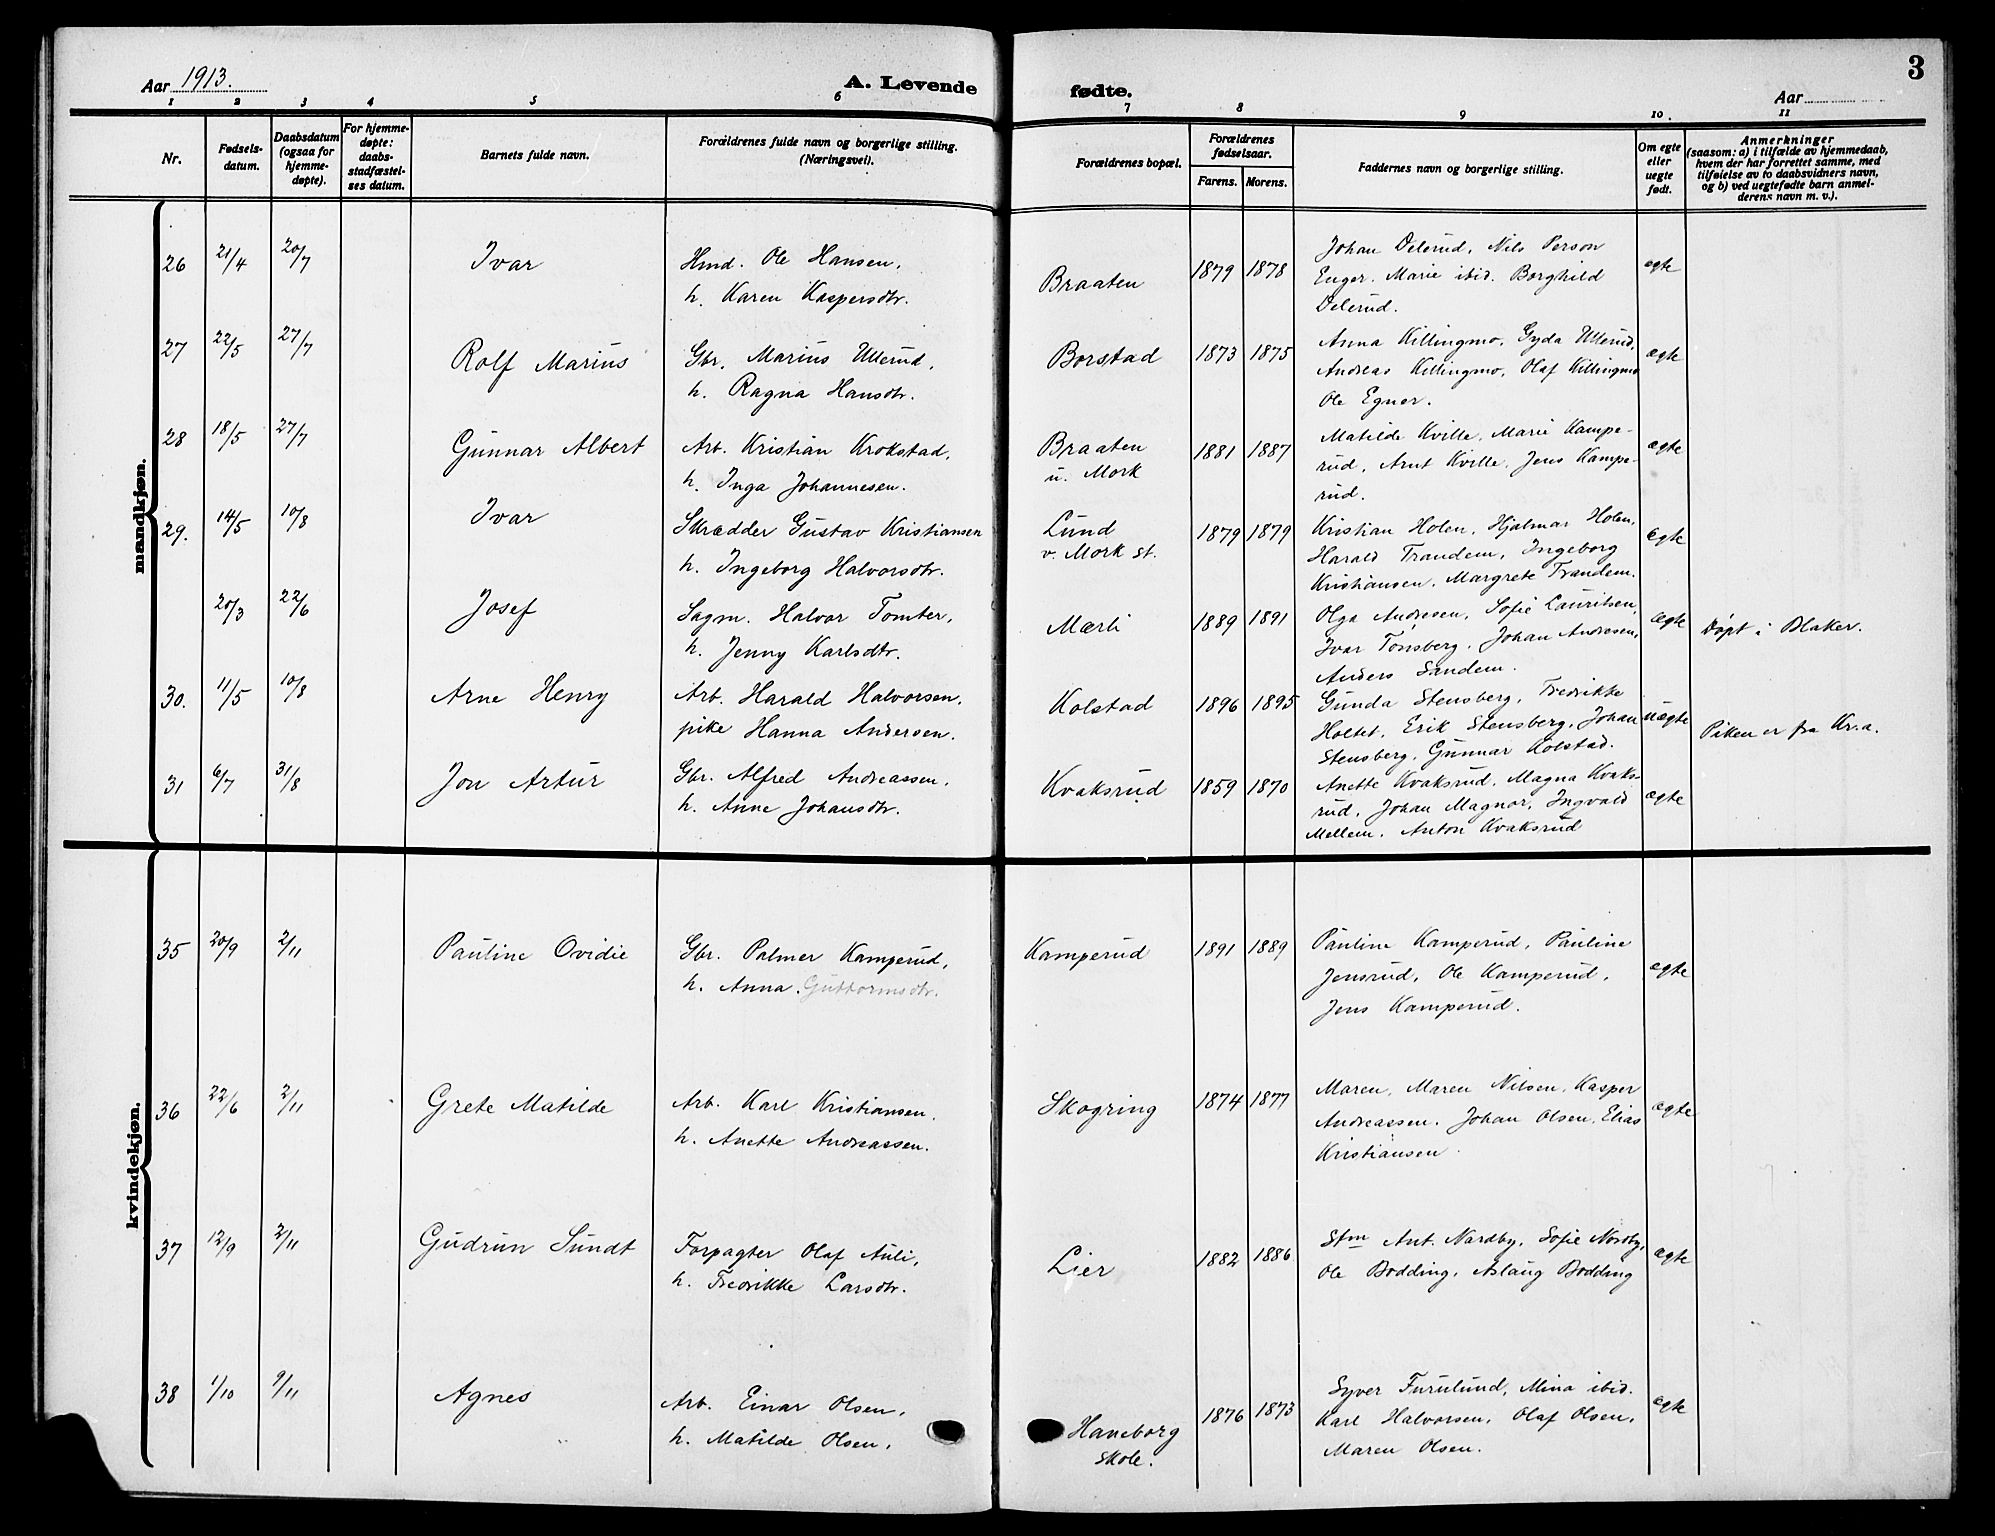 Aar 1913.
A. Levende fødte.
3
Aar
1 2 3 4 5 6 7 8 9 10. 11
Nr.
Fødsels-
datum.
Daabsdatum
(ogsaa for
hjemme-
døpte).
For hjemme-
døpte:
daabs-
stadfæstel-
ses datum.
Barnets fulde navn.
Forældrenes fulde navn og borgerlige stilling.
(Næringsvei).
Forældrenes bopæl.
Forældrenes
fødselsaar.
Farens. Morens.
Faddernes navn og borgerlige stilling.
Om egte
eller
uegte
født.
Anmerkninger
(saasom: a) i tilfælde av hjemmedaab,
hvem der har forrettet samme, med
tilføielse av to daabsvidners navn,
og b) ved uegtefødte barn anmel-
derens navn m. v.).
mandkjøn.
26 21/4 20/7 Ivar
Hmd. Ole Hansen,
h. Karen Kaspersdtr.
Braaten 1879 1878
Johan Delerud, Nils Person
Enger. Marie ibid. Borghild
Delerud.
egte
27 22/5 27/7 Rolf Marius
Gbr. Marius Ullerud,
h. Ragna Hansdtr.
Borstad 1873 1875
Anna Killingmo, Gyda Ullerud,
Andreas Killingmo, Olaf Killingmo
Ole Egner.
ægte
28 18/5 27/7 Gunnar Albert
Arb. Kristian Krokstad,
h. Inga Johannesen.
Braaten
u. Mork
1881 1887
Matilde Kville, Marie Kampe-
rud, Arnt Kville, Jens Kampe-
rud.
ægte
29. 14/5 10/8 Ivar
Skrædder Gustav Kristiansen
h. Ingeborg Halvorsdtr.
Lund
v. Mork st.
1879 1879
Kristian Holen, Hjalmar Holen,
Harald Trandem, Ingeborg
Kristiansen, Margrete Trandem.
Egte
20/3 22/6 Josef
Sagm. Halvor Tomter,
h. Jenny Karlsdtr.
Mærli 1889 1891
Olga Andresen, Sofie Lauritsen,
Ivar Tønsberg, Johan Andresen,
Anders Sandem.
ægte
Døpt i Blaker.
30. 11/5 10/8 Arne Henry
Arb. Harald Halvorsen,
pike Hanna Andersen.
Kolstad 1896 1895
Gunda Stensberg, Fredrikke
Holtet, Erik Stensberg, Johan
Stensberg, Gunnar Kolstad.
uægte
Piken er fra Kr.a.
31 6/7 31/8 Jon Artur
Gbr. Alfred Andreassen,
h. Anne Johansdtr.
Kvaksrud 1859 1870
Anette Kvaksrud, Magna Kvaks-
rud, Johan Magnor, Ingvald
Mellem, Anton Kvaksrud
ægte
kvindekjøn.
35 20/9 2/11 Pauline Ovidie
Gbr. Palmer Kamperud,
h. Anna Guttormsdtr.
Kamperud 1891 1889
Pauline Kamperud, Pauline
Jensrud, Ole Kamperud,
Jens Kamperud.
ægte
36 22/6 2/11 Grete Matilde
Arb. Karl Kristiansen,
h. Anette Andreassen.
Skogring 1874 1877
Maren, Maren Nilsen, Kasper
Andreassen. Johan Olsen, Elias
Kristiansen
ægte
37 12/9 2/11 Gudrun Sundt
Forpagter Olaf Auli,
h. Fredrikke Larsdtr.
Lier 1882 1886
Stm Ant. Nordby, Sofie Nordby,
Ole Bodding, Aslaug Bodding
ægte
38 1/10 9/11 Agnes
Arb. Einar Olsen,
h. Matilde Olsen,
Haneborg
skole.
1876 1873
Syver Furulund, Mina ibid.
Karl Halvorsen, Olaf Olsen,
Maren Olsen.
egte